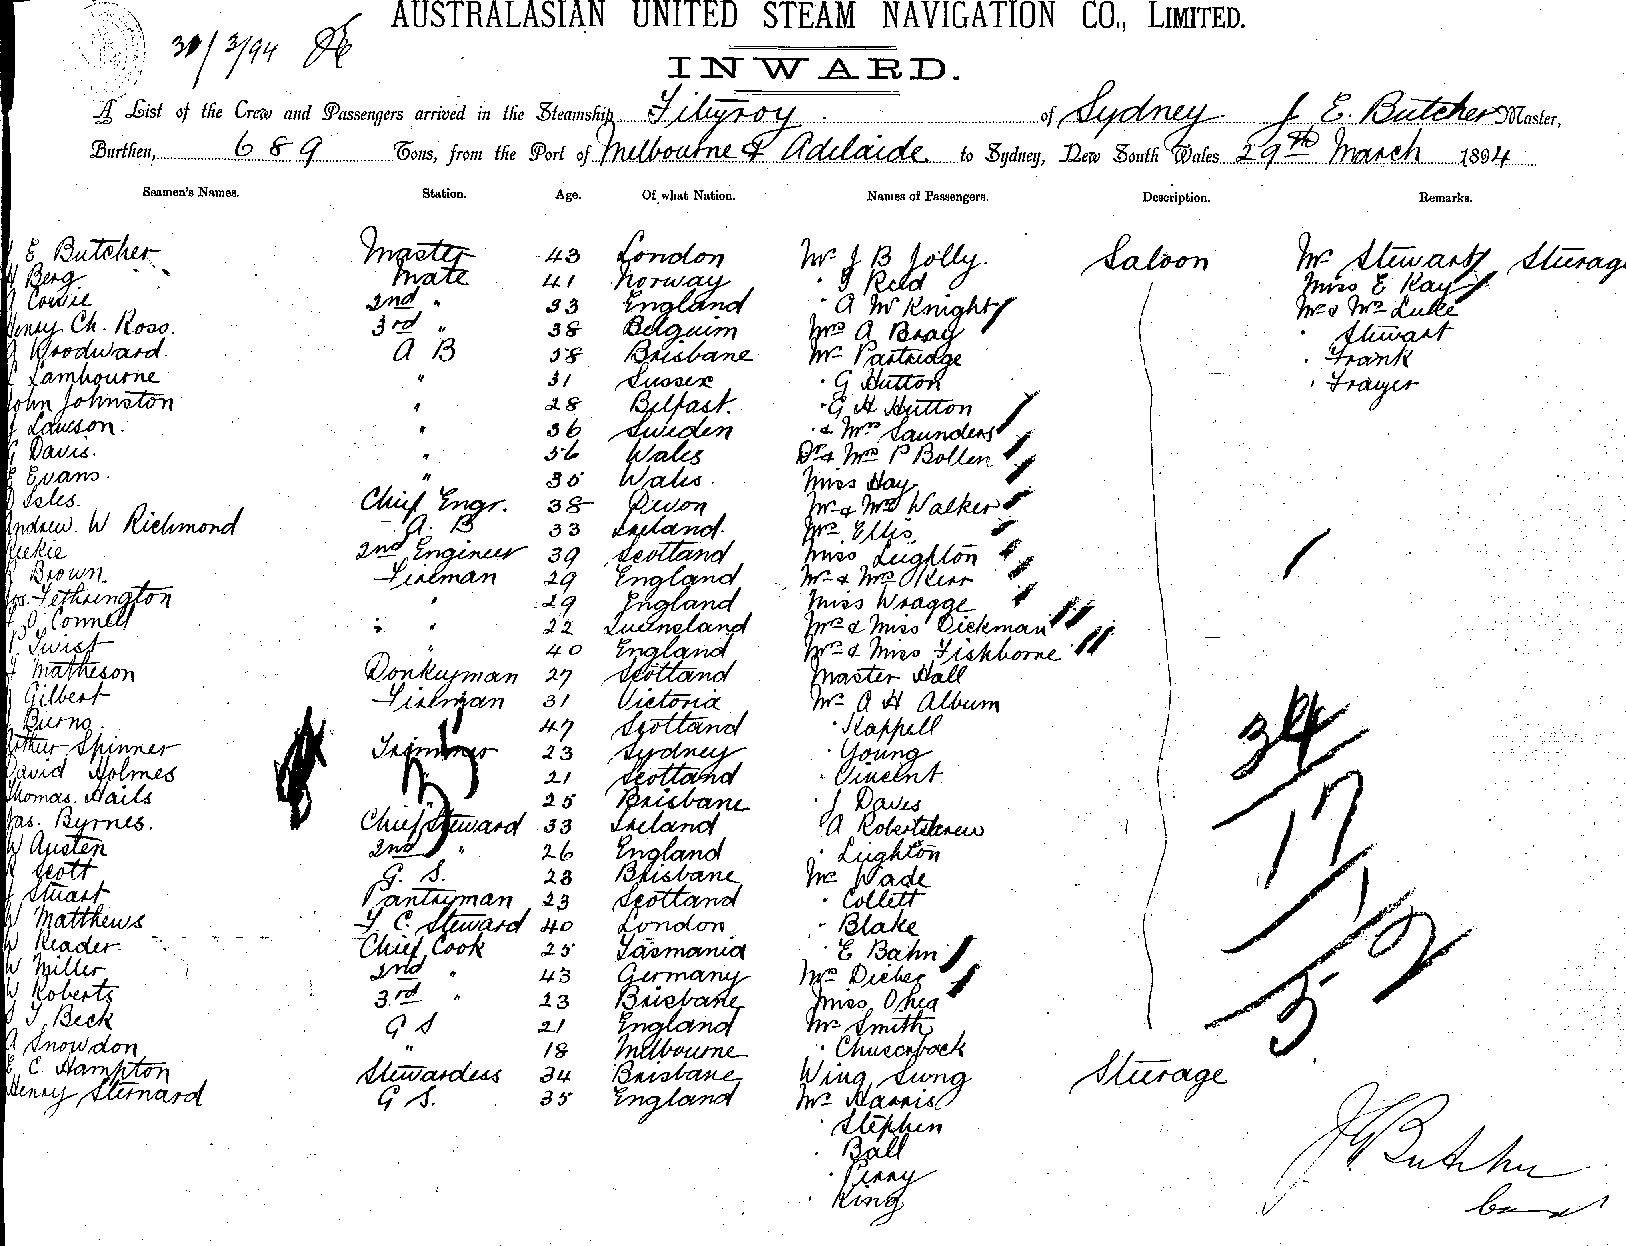 AUSTRALASIAN UNITED STEAM NAVIGATION CO., LIMITED.
30/3/94
INWARD.
A List of the Crew and Passengers arrived in the Steamship Fitzroy of Sydney J E. Butcher Master,
Burthen, 689 Tons, from the Port of Melbourne & Adelaide to Sydney, New South Wales 29th March 1894
Seamen's Names. Station. Age. Of what Nation. Names of Passengers. Description. Remarks.
J E Butcher Master 43 London Mr J B Jolly. Saloon Mr Stewart Sturage
Berg Mate 41 Norway " J Reid Miss E Kay
Cowie 2nd " 33 England " A McKnight Mr & Mrs Luke
Henry Ch. Ross. 3rd " 38 Belguim Mrs A Bray " Stewart
Woodward. A B 58 Brisbane Mr Partridge " Frank
Lambourne " 31 Sussex " G Hutton " Frayer
John Johnston " 28 Belfast. " G H Hutton
Lawson. " 36 Sweden " & Mrs Saunders
Davis. " 56 Wales Dr & Mrs P Bollen
Evans. " 35 Wales. Miss Hay
Isles. Chief Engr. 38 Devon Mr & Mrs Walker
Andrew. W Richmond A. B 33 Ireland. Mrs Ellis
2nd Engineer 39 Scotland Miss Leighton
Brown. Fireman 29 England Mr & Mrs Kerr
Jos. Fethrington " 29 England Miss Wragge
O'Connell " " 22 Queensland Mrs & Miss Dickman
Twist " 40 England Mrs & Miss Fishborne
Matheson Donkeyman 27 Scotland Master Hall
Gilbert Fireman 31 Victoria Mr A H Album
Burns. 47 Scotland " Kappell
Arthur Spinner Trimmer 23 Sydney " Young
David Holmes " 21 Scotland " Vincent
Thomas. Hails " 25 Brisbane " J Daves
Jas. Byrnes. Chief Steward 33 Ireland " A Robertshrew
W Austen 2nd " 26 England " Leighton
Scott G. S. 23 Brisbane Mr Wade
J Stuart Pantryman 23 Scotland " Collett
W Matthews F C. Steward 40 London " Blake
W Reader Chief Cook 25 Tasmania " E Bahn
W Miller 2nd " 43 Germany Mrs
W Roberts 3rd " 23 Brisbane Miss
J. Beck G S 21 England Mr Smith
A Snowdon " 18 Melbourne "
E. C. Hampton Stewardess 34 Brisbane Wing Sung Sturage
Henry Sternard G S. 35 England Mr Harris
" Stephen
" Ball
" Perry
" King
34
17
1
52
J E Butcher